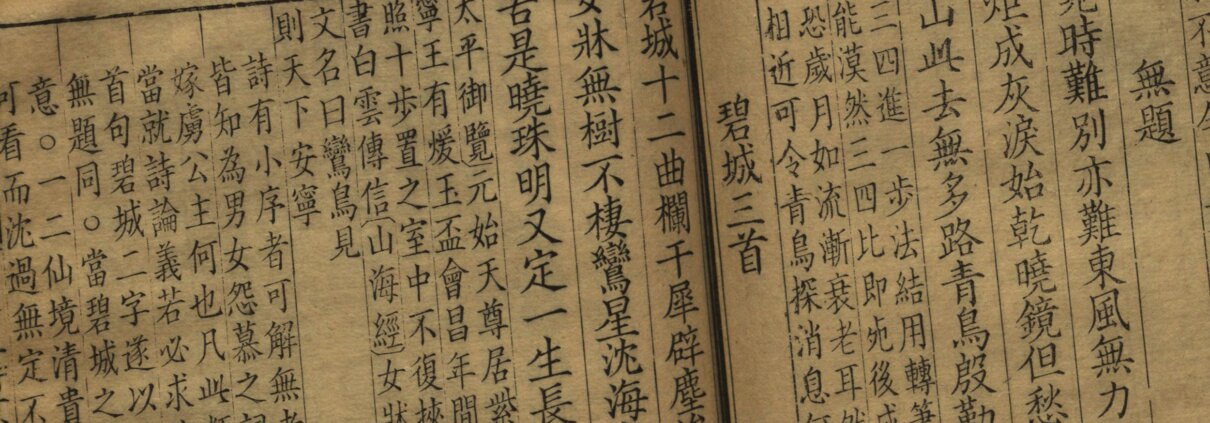 無題
時難別亦難東風無力
炬成灰淚始乾曉鏡但愁
山此去無多路青鳥殷勤
三四進一步法結用轉筆
能漠然三四比即宛後成
恐歲月如流漸衰老耳然
相近可令青鳥探消息
碧城三首
碧城十二曲欄干犀辟塵
女牀無樹不棲鸞星沈海
若是曉珠明又定一生長
太平御覽元始天尊居紫
寧王有煖玉盃會昌年間
照十步置之室中不復挾
書白雲傳信〔山海經〕女牀
文名曰鸞鳥見
則天下安寧
詩有小序者可解無者
皆知為男女怨慕之詞
嫁虜公主何也凡此
當就詩論義若必求
首句碧城二字遂以
無題同○當碧城之
意○一二仙境清貴
可看而沈過無定不